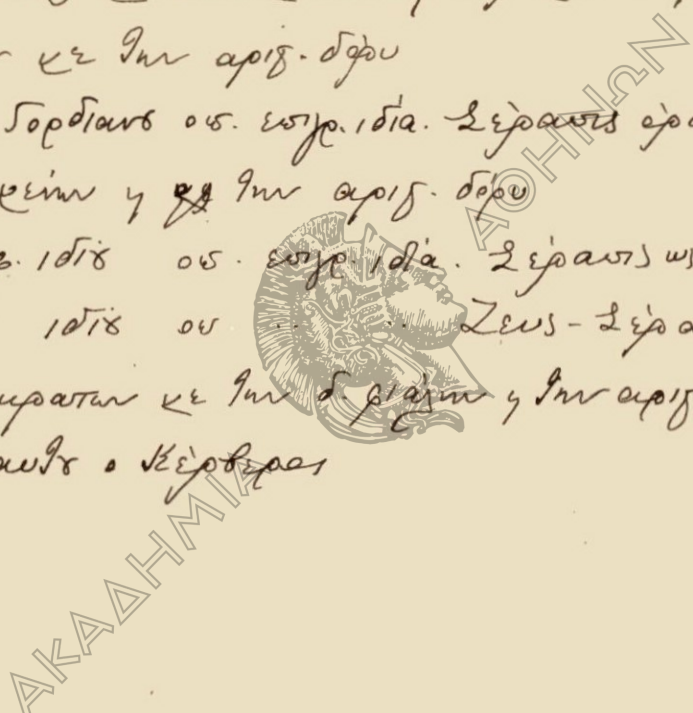 με την αριστ. δόρυ
Γορδιανȣ οπ. επιγρ. ιδία. Σέραπις
η την αριστ. δόρυ
ιδίȣ οπ. επιγρ. ιδία. Σέραπις
ιδίȣ οπ .. .. Ζευς - Σέρα
κρατων με την δ. φιάλην η την αριστ
αυτȣ ο Κέρβερος
ΑΚΑΔΗΜΙΑ ΑΘΗΝΩΝ